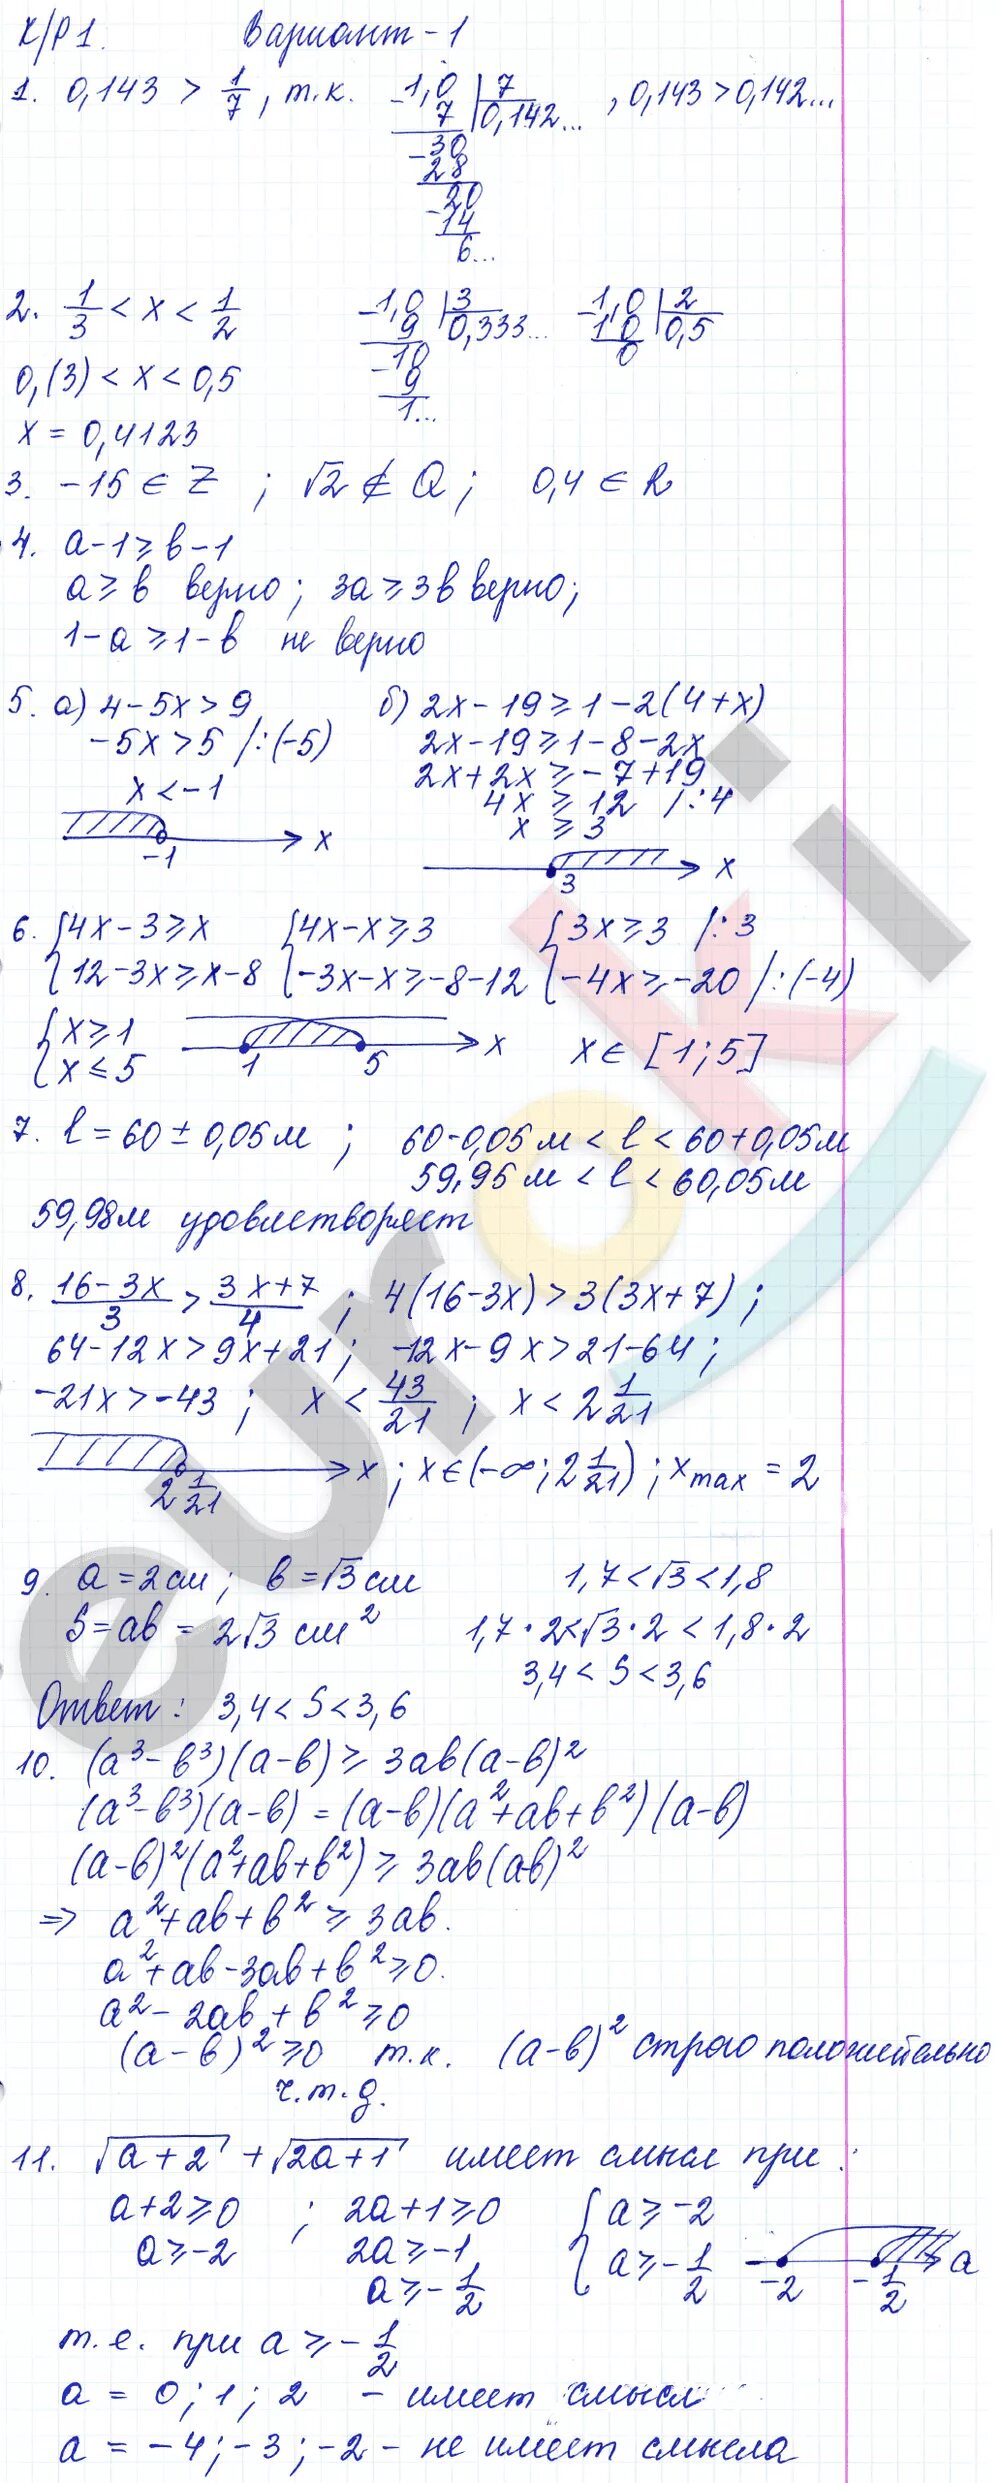 К/Р 1. Вариант - 1
1. 0,143 > 1/7, т.к. 1,0 | 7 , 0,143 > 0,142...
- 7 0,142...
- 30
28
- 20
14
6...
2. 1/3 < x < 1/2 - 1,0 | 3 - 1,0 | 2
9 0,333... 1 0 0,5
0,(3) < x < 0,5 - 10 0
9
1...
x = 0,4123
3. -15 ∈ Z ; √2 ∉ Q ; 0,4 ∈ R
4. a-1 ⩾ в-1
a ⩾ в верно ; 3a ⩾ 3в верно;
1-a ⩾ 1-в не верно
5. а) 4-5x > 9 б) 2x-19 ⩾ 1-2(4+x)
-5x > 5 /:(-5) 2x-19 ⩾ 1-8-2x
x < -1 2x+2x ⩾ -7+19
4x ⩾ 12 /:4
x ⩾ 3
-1 x
3 x
6. {4x-3 ⩾ x {4x-x ⩾ 3 {3x ⩾ 3 /:3
{12-3x ⩾ x-8 {-3x-x ⩾ -8-12 {-4x ⩾ -20 /:(-4)
{x ⩾ 1
{x ⩽ 5 1 5 x x ∈ [1;5]
7. l = 60 ± 0,05 м ; 60-0,05 м < l < 60+0,05 м
59,95 м < l < 60,05 м
59,98 м удовлетворяет
8. (16-3x)/3 > (3x+7)/4 ; 4(16-3x) > 3(3x+7) ;
64-12x > 9x+21 ; -12x-9x > 21-64 ;
-21x > -43 ; x < 43/21 ; x < 2 1/21
2 1/21 x ; x ∈ (-∞; 2 1/21) ; x max = 2
9. a = 2 см ; в = √3 см 1,7 < √3 < 1,8
S = aв = 2√3 см² 1,7·2 < √3·2 < 1,8·2
3,4 < S < 3,6
Ответ: 3,4 < S < 3,6
10. (a³-в³)(a-в) ⩾ 3aв(a-в)²
(a³-в³)(a-в) = (a-в)(a²+aв+в²)(a-в)
(a-в)²(a²+aв+в²) ⩾ 3aв(aв)²
⇒ a²+aв+в² ⩾ 3aв.
a²+aв-3aв+в² ⩾ 0.
a²-2aв+в² ⩾ 0
(a-в)² ⩾ 0 т.к. (a-в)² строго положительно
ч.т.д.
11. √(a+2) + √(2a+1) имеет смысл при :
a+2 ⩾ 0 ; 2a+1 ⩾ 0 {a ⩾ -2
a ⩾ -2 2a ⩾ -1 {a ⩾ -1/2 -2 -1/2 a
a ⩾ -1/2
т.е. при a ⩾ -1/2
a = 0; 1; 2 - имеет смысл
a = -4; -3; -2 - не имеет смысла
euroki